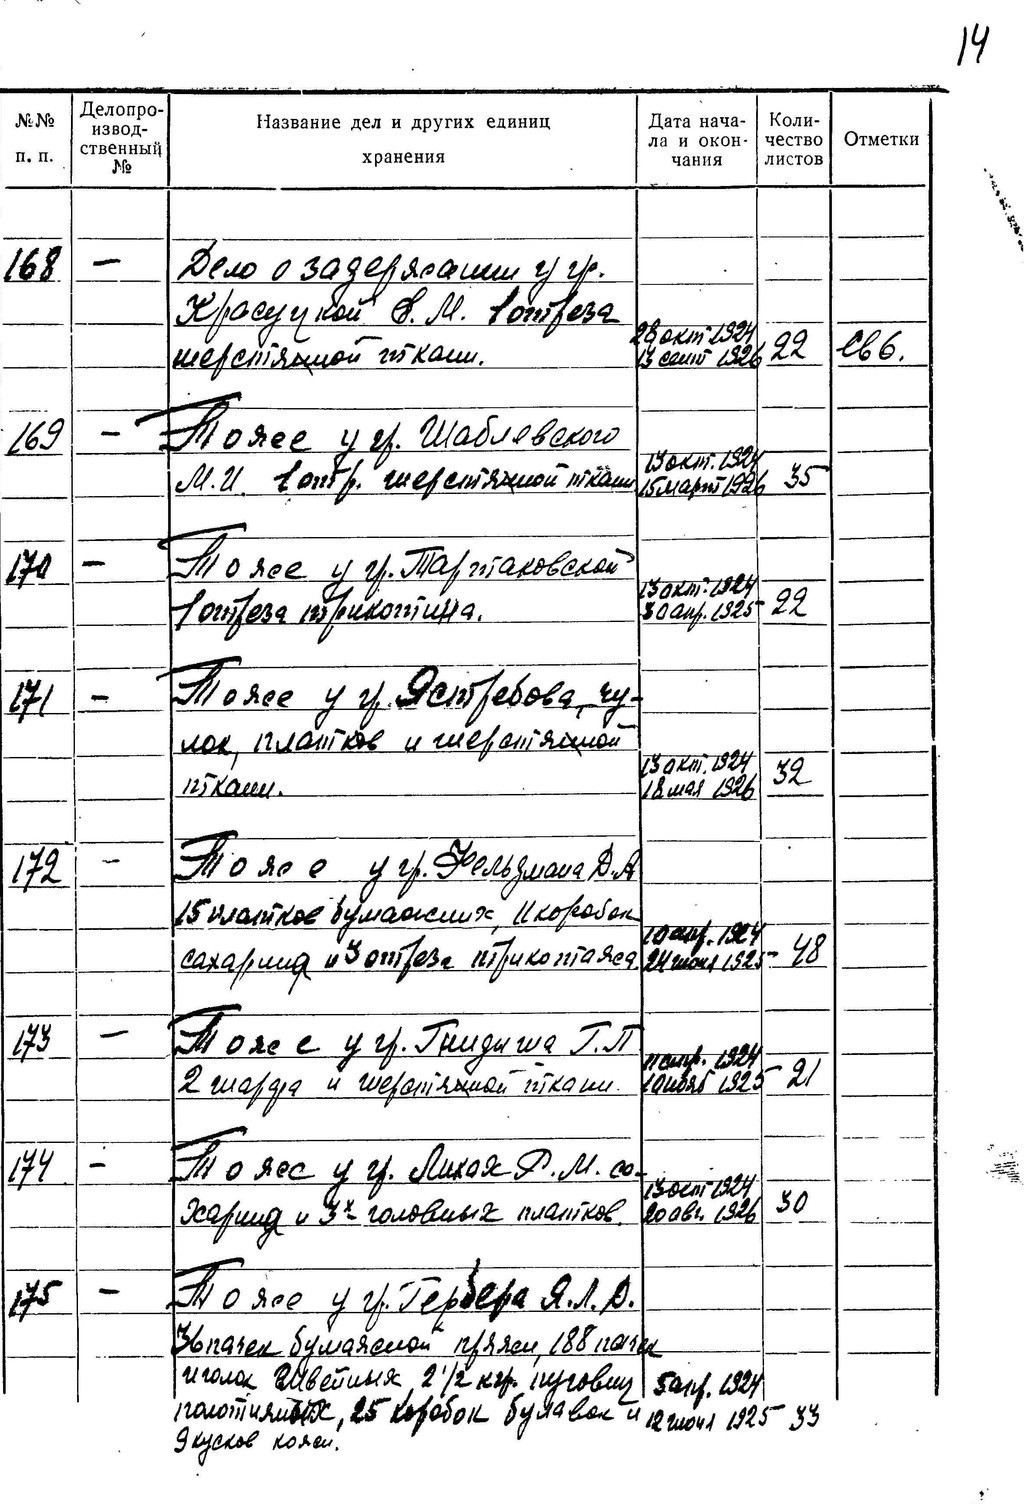 14
№№ п. п.
Делопро-
извод-
ственный
№
Название дел и других единиц
хранения
Дата нача-
ла и окон-
чания
Коли-
чество
листов
Отметки
168 — Дело о задержании у гр.
Красуцкой С. М. 1 отреза
шерстяной ткани. 28 окт 1924 13 сент 1926 22 Св 6.
169 — То же у гр. Шаблевского
М.И. 1 отр. шерстяной ткани 13 окт. 1924 15 март 1926 35
170 — То же у гр. Тартаковской
1 отреза трикотина. 13 окт. 1924 30 апр. 1925 22
171 — То же у гр. Ястребова, чу-
лок, платков и шерстяной
ткани. 13 окт. 1924 18 мая 1926 32
172 — То же у гр. Фельдмана Д.А
15 платков бумажных, 11 коробок
сахарина и 3 отреза трикотажа 10 апр. 1924 24 июня 1925 48
173 — То же у гр. Гнидиша Г.П
2 шарфа и шерстяной ткани. 11 апр. 1924 10 нояб 1925 21
174 — То же у гр. Лихах Р.М. са-
харина и 3х головных платков. 13 окт 1924 20 авг. 1926 30
175 — То же у гр. Гербера Я.Л.Д.
36 пачек бумажной пряжи, 188 пачек
иголок швейных 2 1/2 кгр. пуговиц 5 апр. 1924
полотняных, 25 коробок булавок и 12 июня 1925 33
9 кусков кожи.